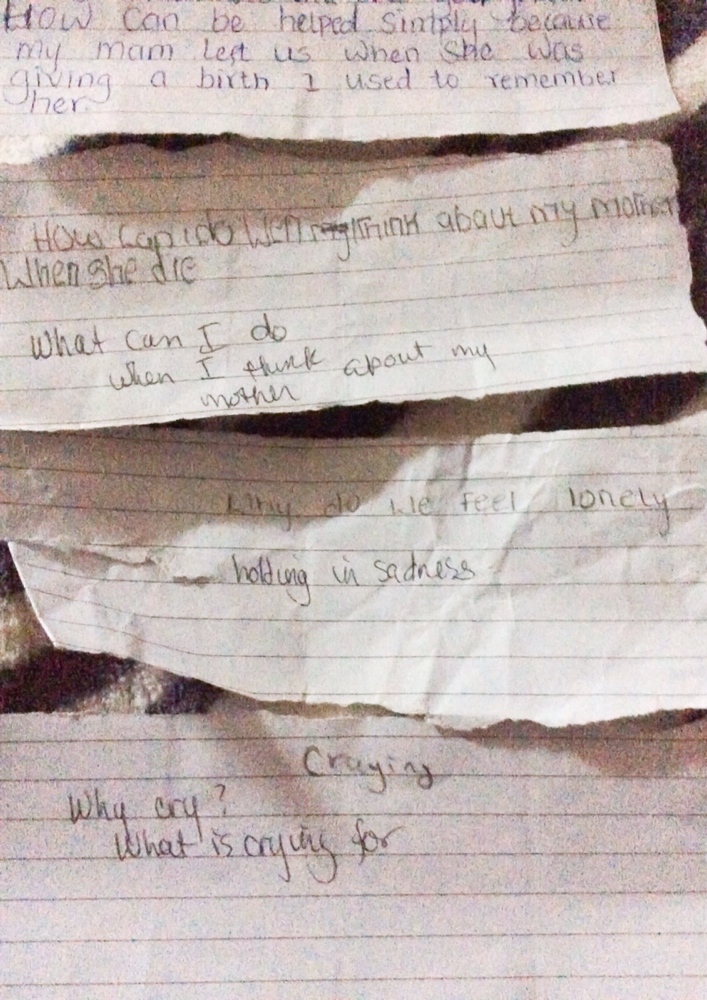 How can be helped simply because
my mam left us when she was
giving a birth I used to remember
her.
How can i do Wen think about my mother
When she die
What can I do
when I think about my
mother
Why do we feel lonely
holding in sadness
Craying
Why cry?
What is crying for